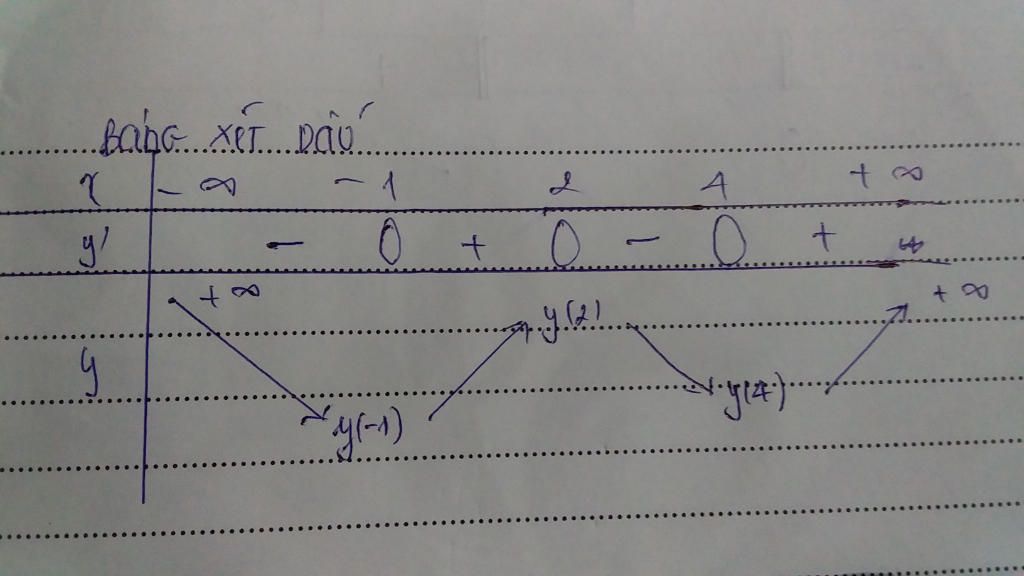 BẢNG XÉT DẤU
x -∞ -1 2 4 +∞
y' - 0 + 0 - 0 +
+∞ y(2) +∞
y y(-1) y(4)